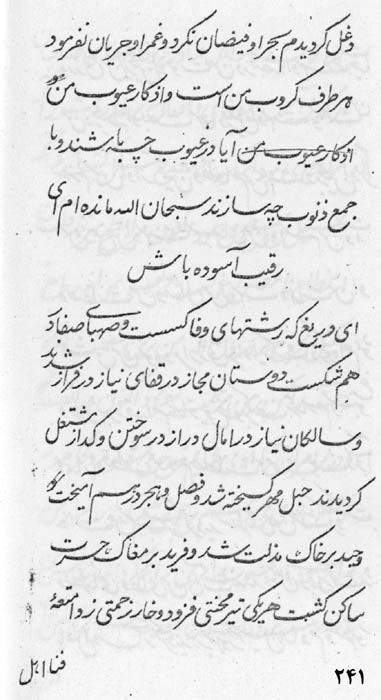 دغل کردیدم بحر او فیضان نکرد و غمر او جریان نفرمود
هر طرف کروب من است و اذکار عیوب من گو
اذکار عیوب من آیا در عیوب چه باشند و با
جمع ذنوب چه سازند سبحان الله مانده ام ای
رقیب آسوده باش
ای دریغ که رشتهای وفا گسست و صهبای صفا در
هم شکست دوستان مجاز در قفای نیاز در فراز شدید
و سالکان نیاز در امال دراز در سوختن و گداز مشتغل
کردیدند حبل مهر گسیخته شد و فصل و هجر در هم آمیخت گو
وحید بر خاک مذلت شد و فرید بر مغاک حسرت
ساکن گشت هر یکی تیر محنتی فزود و خار زحمتی زد امتعهٔ
فنا اهل
۲۴۱